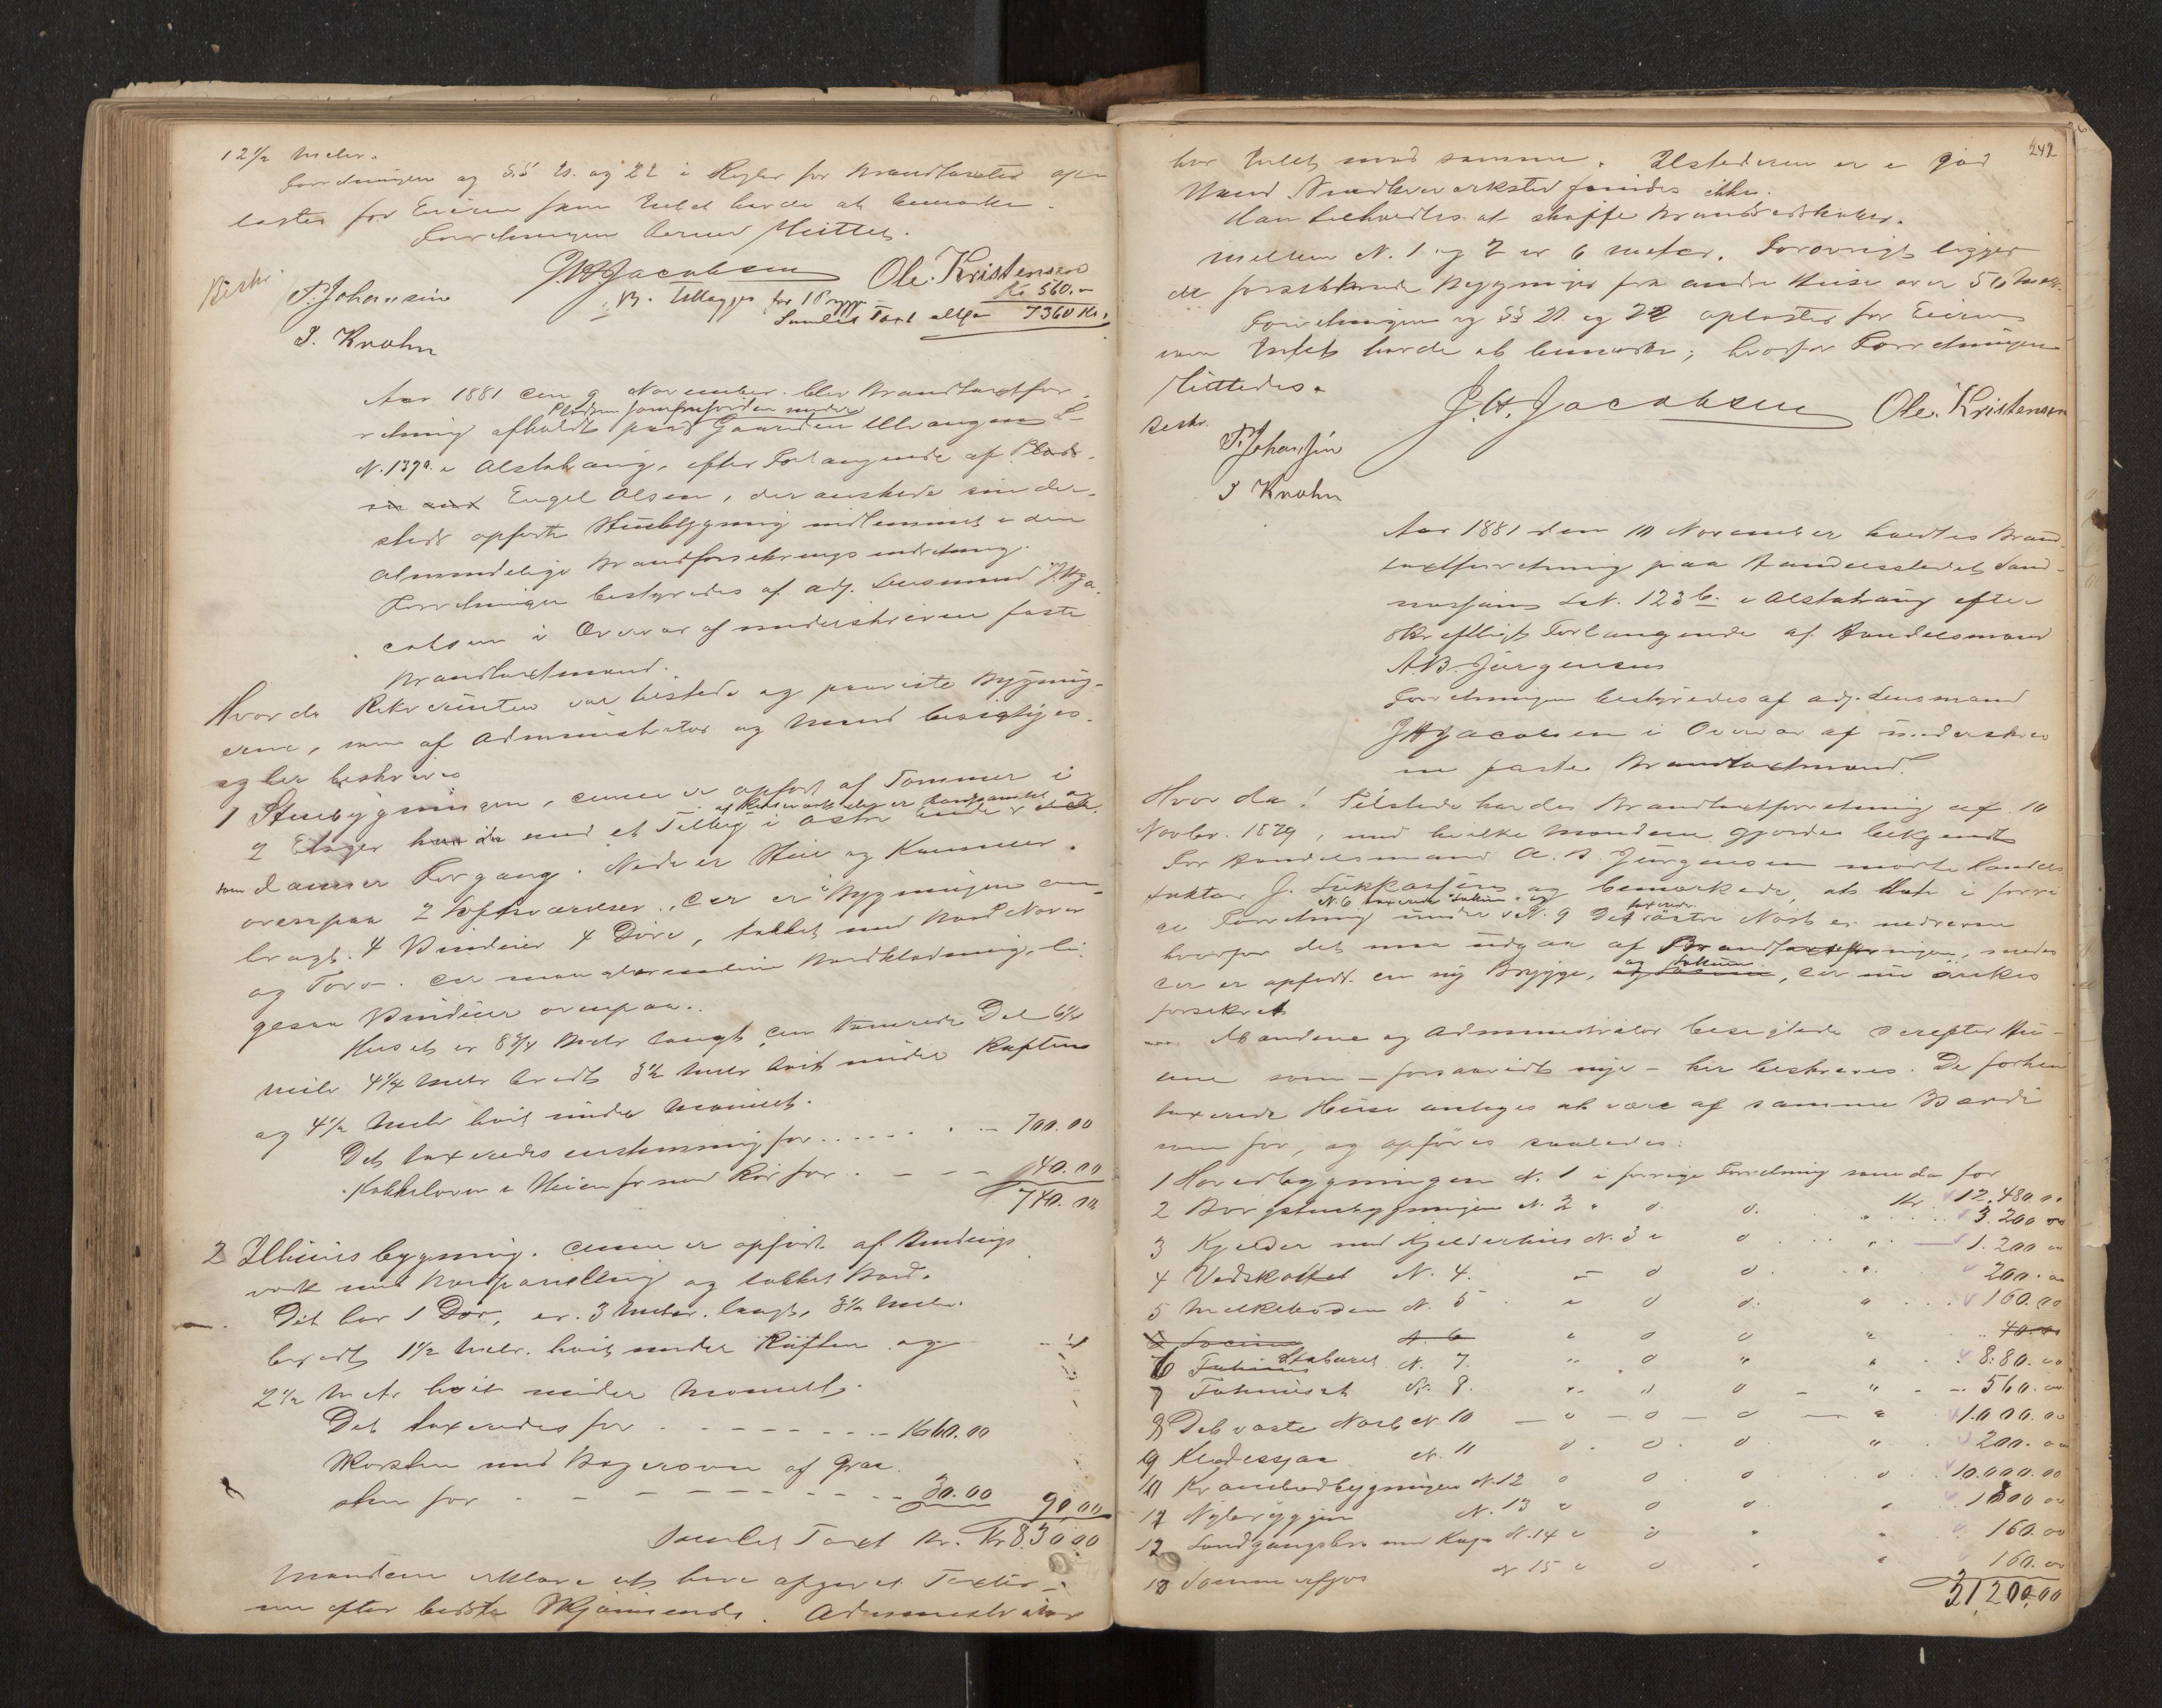 12½ Meter.
Forretningen og §§ 21. og 22 i Regler for Brandtaxter op-
læstes for Eieren som Intet havde at bemærke.
Forretningen dermed sluttet.
JHJacobsen Ole Kristensen
Beskr.
P. Johansen
NB. Tillægges for 1 Brygge Kr 560.00
Samlet Taxt altsaa 7360 Kr.
I. Krohn
Aar 1881 den 9 November blev Brandtaxtfor-
Pladsen Jomfrufjorden under
retning afholdt paa Gaarden L-
N. 137a i Alstahaug, efter Forlangende af Plads-
Engel Olsen, der ønskede sin der-
steds opførte Huusbygning indlemmet i den
almindelige Brandforsikringsindretning.
Forretningen bestyredes af adj. Lensmand JHJa-
cobsen i Overvær af underskrevne faste
Brandtaxtmænd.
Hvor da Rekvirenten var tilstede og paaviste Bygning-
erne, som af Administrator og Mænd besigtiges
og her beskrives
1 Stuebygningen, denne er opført af Tømmer i
2 Etager med et Tilbyg i østre Ende
som danner Forgang. Nede er Stue og Kammer.
ovenpaa 2 Loftsværelser, der er i Bygningen an-
bragt 4 Vinduer 4 Døre, tækket med Bord Næver
og Torv. der mangler endnu Bordklædning, li-
gesaa Vinduer ovenpaa.
Huset er 8¾ Meter langt, den tømrede Del 6¼
Meter 4¼ Meter bredt 3½ Meter høit under Raften
og 4½ Meter høit under Mønnet.
Det taxeredes enstemmig for 700.00
Kakkelovn i Stuen for med Rør for 40.00
740.00
2 Ildhuusbygning. denne er opført af Bindings-
værk med Bordpaneling og tækket Bord.
Det har 1 Dør, er 3 Meter langt, 3½ Meter
bredt 1½ Meter høit under Raften og
2½ Meter høit under Mønnet.
Det taxeredes for Kr 60.00
Skorsten med Bagerovn af Graa-
sten for 30.00 90.00
Samlet Taxt Kr. Kr 830.00
Mændene erklære at have afgivet Taxter-
ne efter bedste Skjønnende. Administrator
242
har Intet mod samme. Ildstederne er i god
Stand. Snedkerværksted findes ikke.
Han tilholdtes at skaffe Brandredskaber.
Mellem N. 1 og 2 er 6 Meter. Forøvrigt ligger
de forsikrede Bygninger fra andre Huse over 50 Meter.
Forretningen og §§ 21 og 22 oplæstes for Eieren
som Intet havde at bemærke; hvorfor Forretningen
sluttedes.
J.H. Jacobsen Ole Kristensen
Beskr.
P. Johansen
I Krohn
Aar 1881 den 10 November holdtes Brand-
taxtforretning paa Handelsstedet Sand-
nessjøen L.N. 123 b. i Alstahaug efter
skriftligt Forlangende af Handelsmand
A.B. Jürgensen
Forretningen bestyredes af adj. Lensmand
JHJacobsen i Overvær af underskrev-
ne faste Brandtaxtmænd.
Hvor da! Tilstede havdes Brandtaxtforretning af 10
Novbr. 1879, med hvilke Mændene gjordes bekjendt
For Handelsmand A. B. Jürgensen mødte Handels-
faktor J. og bemærkede, at i forri-
ge Forretning under N. 9 Det østre Nøst er nedrevne
hvorfor det maa udgaa af Brandforsikringen, medens
der er opført en ny Brygge, der nu ønskes
forsikret
Mændene og Administrator besigtede derefter Hu-
sene som – forsaavidt nye – her beskreves. De forhen
taxerede Huse antoges at være af samme Værdi
som før, og opføres saaledes:
1 Hovedbygningen N. 1 i forrige Forretning som da for Kr 12.480.00
2 Borgstuebygningen N. 2 " d. d. " 3.200 00
3 Kjelder med Kjelderhuus N. 3 " d " 1.200 00
4 Vedskottet N. 4. " d d. " 200.00
5 Melkeboden N. 5 " d d. " 160.00
N. 6 " d d " 40.00
6 Staburet N. 7. " d " " 880.00
7 Fæhuset N. 8. " d d " 560.00
8 Det væste Nøst N. 10 d d d " 1.000.00
9 N. 11 d d d " 200.00
10 Krambodbygningen N. 12 d d d d 10.000.00
11 Nybryggen N. 13 " d d
12 Landgangsbro med Kaje N. 14 " d " " 160.00
13 N 15 " d " " 160.00
31,200,00